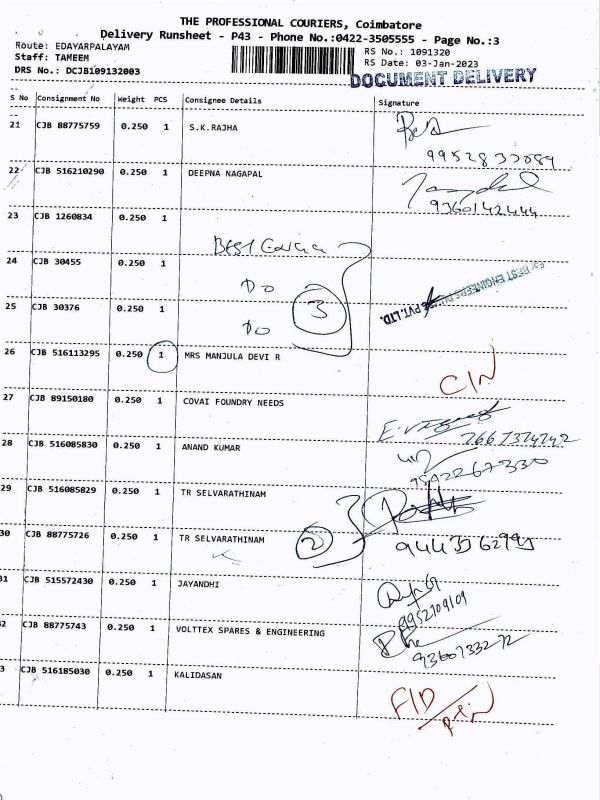 THE PROFESSIONAL COURIERS, Coimbatore
Delivery Runsheet - P43 - Phone No.:0422-3505555 - Page No.:3
Route: EDAYARPALAYAM RS No.: 1091320
Staff: TAMEEM RS Date: 03-Jan-2023
DRS No.: DCJB109132003 DOCUMENT DELIVERY
S No Consignment No Weight PCS Consignee Details Signature
21 CJB 88775759 0.250 1 S.K.RAJHA
22 CJB 516210290 0.250 1 DEEPNA NAGAPAL
9360142444
23 CJB 1260834 0.250 1
24 CJB 30455 0.250 1 Do
3
For BEST ENGINEERS PVT. LTD.
25 CJB 30376 0.250 1 Do
26 CJB 516113295 0.250 1 MRS MANJULA DEVI R
27 CJB 89150180 0.250 1 COVAI FOUNDRY NEEDS
28 CJB 516085830 0.250 1 ANAND KUMAR
29 CJB 516085829 0.250 1 TR SELVARATHINAM
30 CJB 88775726 0.250 1 TR SELVARATHINAM 2
31 CJB 515572430 0.250 1 JAYANDHI
9952709109
32 CJB 88775743 0.250 1 VOLTTEX SPARES & ENGINEERING
33 CJB 516185030 0.250 1 KALIDASAN